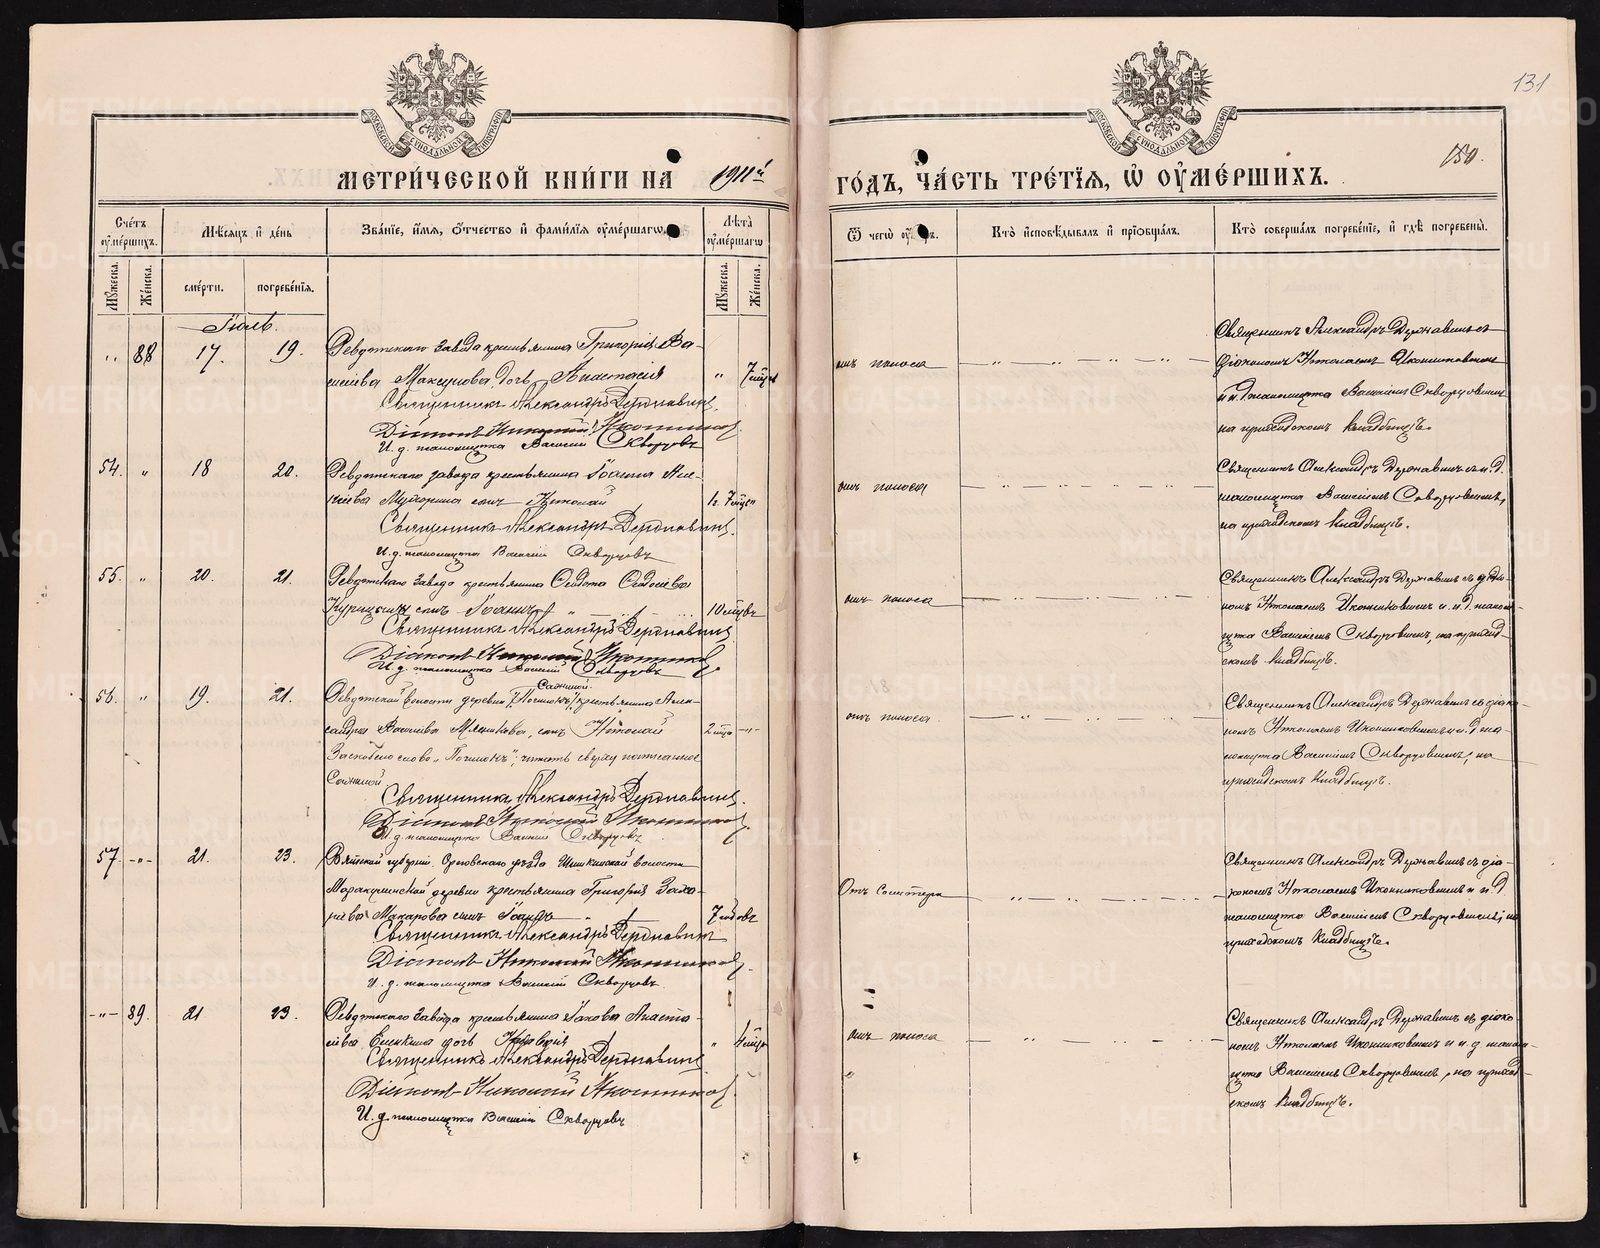 131
150.
МЕТРИ́ЧЕСКОЙ КНИ́ГИ НА 1911й ГО́ДЪ, ЧА́СТЬ ТРЕ́ТІЯ, Ѿ ОУМЕ́РШИХЪ.
Сче́тъ оумершихъ.
Мѣсяцъ и день
Зва́нїе, и́мя, о́тчество и фами́лїя оуме́ршагѡ.
Лѣта̀ оуме́ршагѡ
Ѿ чегѡ̀
Кто̀ и҆сповѣ́дывалъ и прїѡбща́лъ.
Кто̀ соверша́лъ погребе́нїе, и гдѣ̀ погребены̀.
Мꙋжеска.
Же́нска.
сме́рти.
погребе́нїя.
Мꙋжеска.
Же́нска.
Іюль.
" 88 17. 19.
Ревдинскаго завода крестьянина Григорія Ва-
сильева Максунова, дочь Анастасія
" 7 мѣс
Священникъ Александръ Державинъ.
Діаконъ Николай Иконниковъ
И. д. псаломщика Василій Скворцовъ
отъ поноса
Священникъ Александръ Державинъ съ
діакономъ Николаемъ Иконниковымъ
и и. д. псаломщика Василіемъ Скворцовымъ
на приходскомъ кладбищѣ.
54. " 18 20.
Ревдинскаго завода крестьянина Іоанна
сынъ Николай
1 г. 7 мѣс
Священникъ Александръ Державинъ.
И. д. псаломщика Василій Скворцовъ
отъ поноса
Священникъ Александръ Державинъ и и. д.
псаломщика Василіемъ Скворцовымъ,
на приходскомъ кладбищѣ.
55. " 20. 21.
Ревдинскаго завода крестьянина Ѳедота Ѳедосѣева
сынъ Іоаннъ
10 мѣсцвъ
Священникъ Александръ Державинъ
Діаконъ Николай Иконниковъ
И. д. псаломщика Василій Скворцовъ
отъ поноса
Священникъ Александръ Державинъ съ діако-
номъ Николаемъ Иконниковымъ и и. д. псалом-
щика Василіемъ Скворцовымъ, на приход-
скомъ кладбищѣ.
56. " 19. 21.
Сажиной
Ревдинской волости деревни „Починокъ" крестьянина Алек-
сандра Васильева Мясникова, сынъ Николай
2 мѣс
Зачеркнутое слово „Починокъ", читать сверху написанное
Сажиной
Священникъ Александръ Державинъ.
Діаконъ Николай Иконниковъ
И. д. псаломщика Василій Скворцовъ
отъ поноса.
Священникъ Александръ Державинъ съ діако-
номъ Николаемъ Иконниковымъ и и. д. пса-
ломщика Василіемъ Скворцовымъ, на
приходскомъ кладбищѣ.
57. " 21. 23.
Вятской губерніи Орловскаго уѣзда волости
деревни крестьянина Григорія Заха-
рьева Макарова сынъ Іоаннъ
7 годовъ
Священникъ Александръ Державинъ
Діаконъ Николай Иконниковъ
И. д. псаломщика Василій Скворцовъ.
Священникъ Александръ Державинъ съ діа-
кономъ Николаемъ Иконниковымъ и и. д.
псаломщика Василіемъ Скворцовымъ, на
приходскомъ кладбищѣ.
" 89. 21 23.
Ревдинскаго завода крестьянина Іакова
дочь
" 4 мѣс
Священникъ Александръ Державинъ
Діаконъ Николай Иконниковъ.
И. д. псаломщика Василій Скворцовъ
отъ поноса
Священникъ Александръ Державинъ съ діако-
номъ Николаемъ Иконниковымъ и и. д. псалом-
щика Василіемъ Скворцовымъ, на приход-
скомъ кладбищѣ.
METRIKI.GASO-URAL.RU